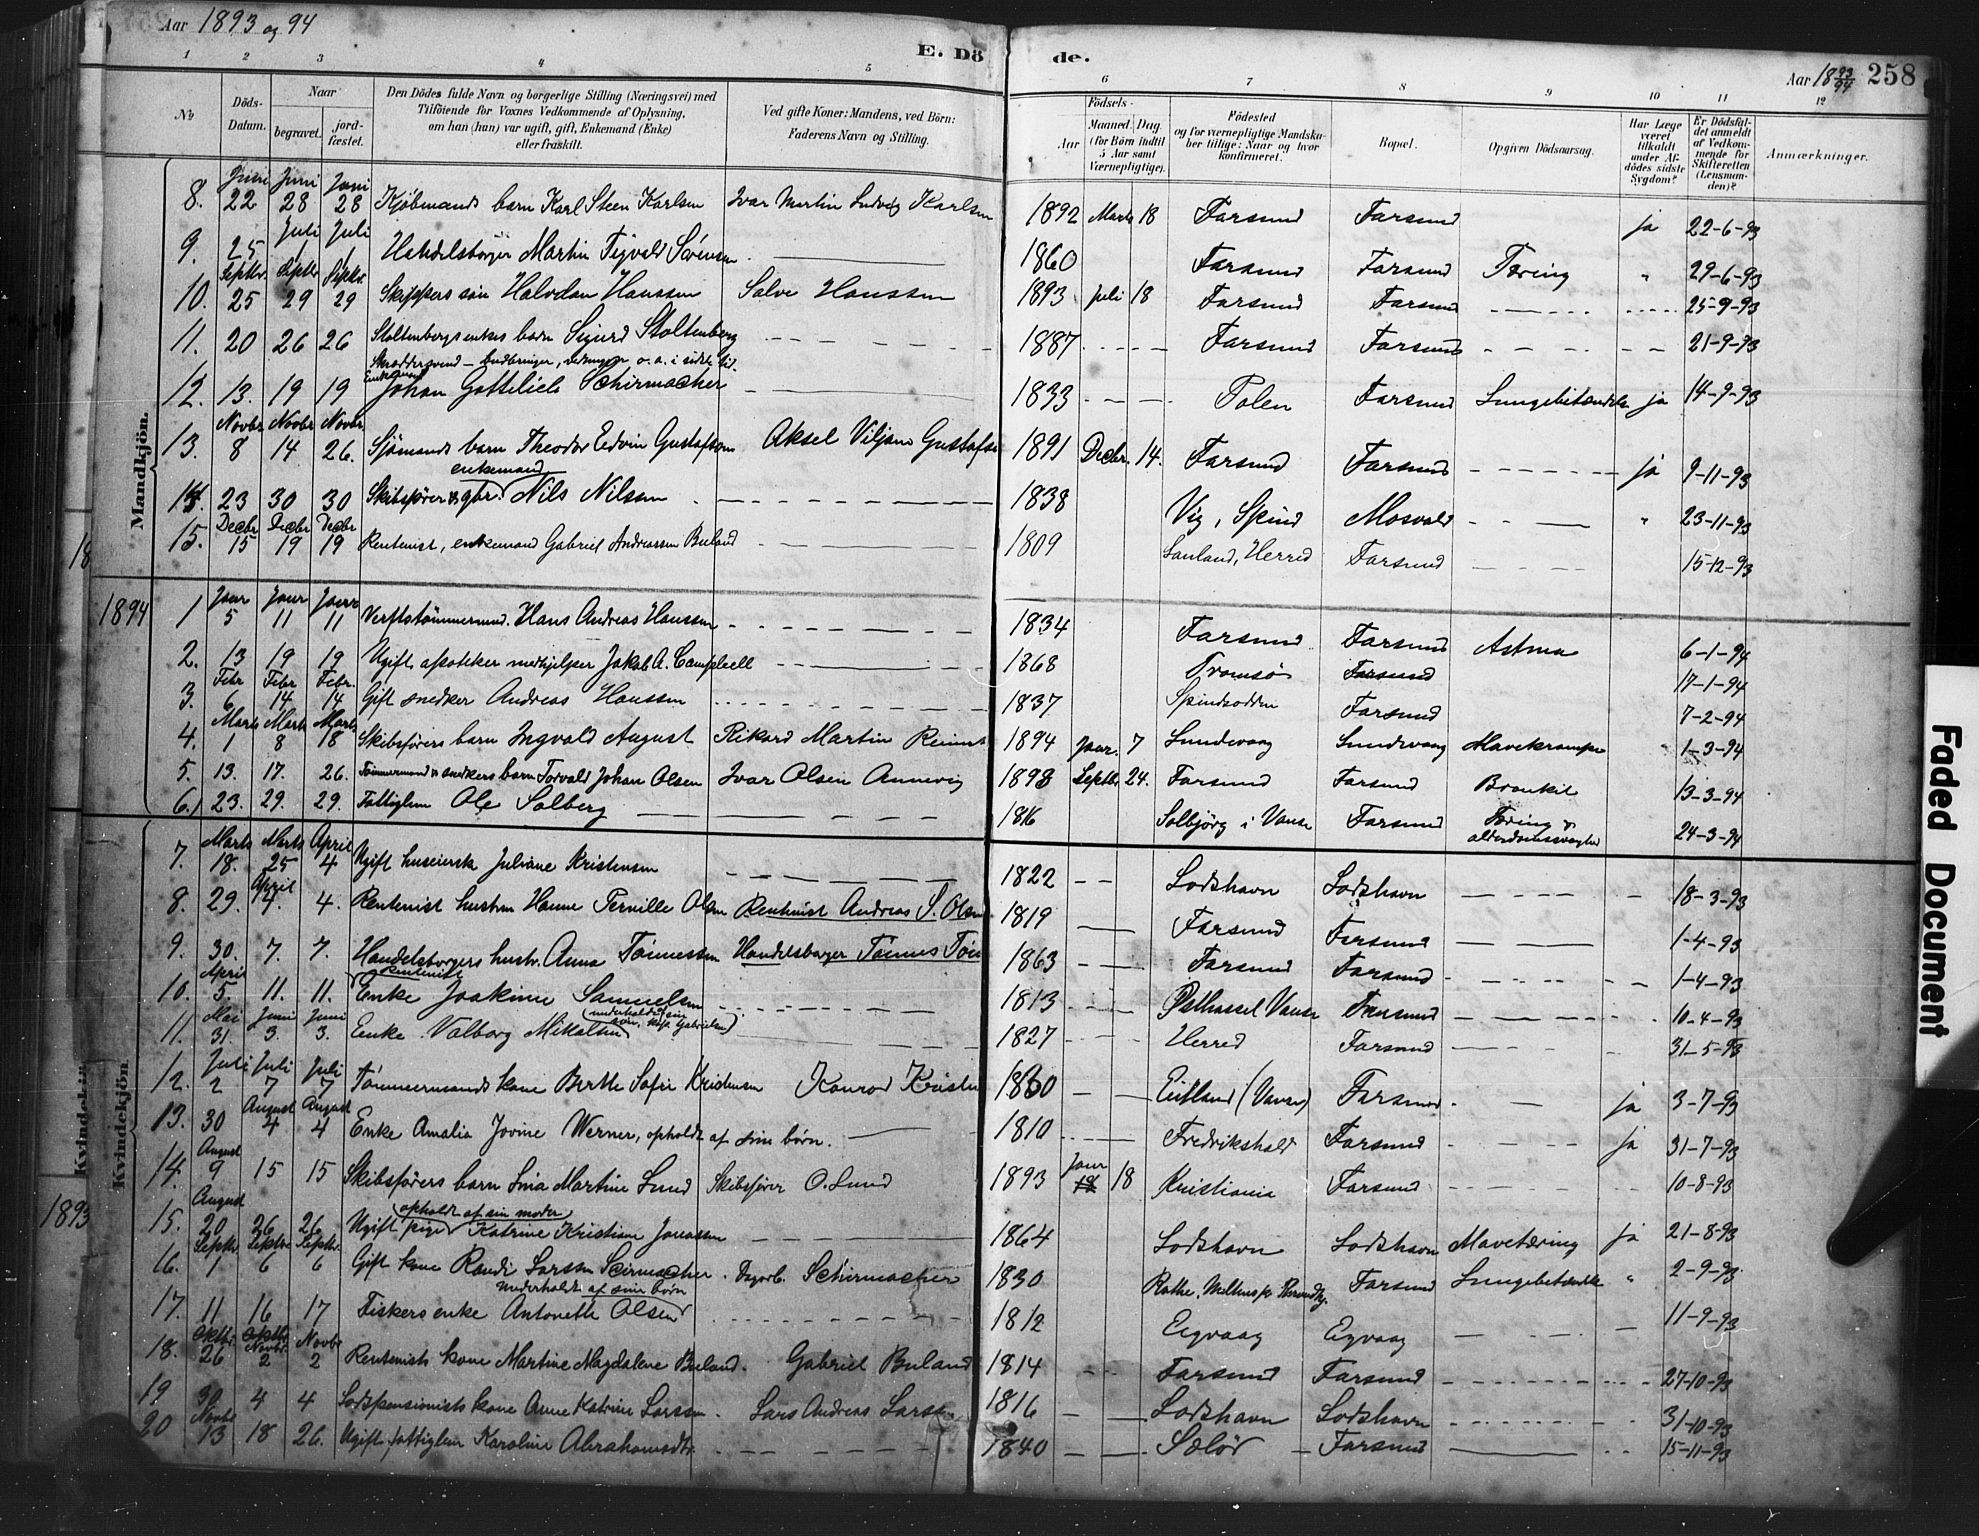 Aar 1893 og 94
E. Döde.
Aar 18 93/94 258
1 2 3 4 5 6 7 8 9 10 11 12
No
Döds-Datum.
Naar
begravet.
jord-fæstet.
Den Dödes fulde Navn og borgerlige Stilling (Næringsvei) med
Tilföiende for Voxnes Vedkommende af Oplysning,
om han (hun) var ugift, gift, Enkemand (Enke)
eller fraskilt.
Ved gifte Koner: Mandens, ved Börn:
Faderens Navn og Stilling.
Födsels-
Aar
Maaned. Dag.
(for Börn indtil
5 Aar samt
Værnepligtige).
Födested
og for værnepligtige Mandska-
ber tillige: Naar og hvor
konfirmeret.
Bopæl.
Opgiven Dödsaarsag.
Har Læge
været
tilkaldt
under Af-
dödes sidste
Sygdom?
Er Dödsfal-
det anmeldt
af Vedkom-
mende for
Skifteretten
(Lensman-
den)?
Anmærkninger.
Mandkjön.
Juni Juni Juni
8. 22 28 28 Kjøbmands barn Karl Steen Karlsen Ivar Martin Ludvig Karlsen 1892 Marts 18 Farsund Farsund ja 22-6-93
Juli Juli
9. 25 1 1 Handelsborger Martin Sigvald Sørensen 1860 Farsund Farsund Tæring " 29-6-93
Septbr. Septbr Septbr.
10. 25 29 29 Skippers søn Halvdan Hanssen Salve Hanssen 1893 Juli 18 Farsund Farsund 25-9-93
11. 20 26 26 Stoltenbergs enkes barn Sigurd Stoltenberg 1887 Farsund Farsund 21-9-93
Skræddersvend - budbringer, o. a. i sidste tid.
Enkemand
12. 13. 19 19 Johan Gottlieb Schirmacher 1833 Polen Farsund Lungebetændelse ja 14-9-93
Novbr. Novbr Novbr.
13. 8 14 26. Sjømands barn Theodor Edvin Gustafsen Aksel Viljam Gustafsen 1891 Decbr. 14. Farsund Farsund ja 9-11-93
enkemand
14. 23 30 30 Skibsfører & gbr. Nils Nilssen 1838 Vig, Spind Mosvold " 23-11-93
Decbr Decbr Decbr
15. 15 19 19 Rentenist, enkemand Gabriel Andreassen Buland 1809 Sanland, Herred Farsund 15-12-93
18
1894
Januar Januar Januar
1 5 11 11 Verftstømmermand. Hans Andreas Hanssen 1834 Farsund Farsund Astma 6-1-94
2. 13 19 19 Ugift apoteker medhjelper Jakob A. Campbell 1868 Tromsø Farsund 17-1-94
Febr Febr Febr.
3. 6 14 14 Gift snedker Andreas Hanssen 1837 Spindsodden Farsund 7-2-94
Marts Marts Marts
4. 1 8 18 Skibsførers barn Ingvald August Rikard Martin 1894 Januar. 7 Lundevaag Lundevaag Mavekrampe 1-3-94
5. 13. 17. 26. Tømmermand & snedkers barn Torvald Johan Olsen Ivar Olsen Annevig 1893 Septbr 24. Farsund Farsund Bronkit 13-3-94
6. 23. 29. 29. Fattiglem Ole Solberg 1816 Solbjørg i Vanse Farsund Tæring & alderdomssvaghed 24-3-94
Kvindekjön
1893
Marts Marts April
7. 18. 25 4 Ugift huseierske Juliane Kristensen 1822 Lodshavn Lodshavn 18-3-93
April
8. 29. 4. 4. Rentenist hustru Hanne Pernille Olsen Rentenist Andreas S. Olsen 1819 Farsund Farsund 1-4-93
9. 30. 7. 7. Handelsborgers hustr. Anna Tønnessen Handelsborger Tønnes Tøn 1863 Farsund Farsund 1-4-93
April Rentenist
10. 5. 11. 11. Enke Joakime Samuelsen 1813 Østhassel Vanse Farsund 10-4-93
Mai Juni Juni (underholdt af sin søn, Gabrielsen)
11. 31. 3. 3. Enke Valborg Mikalsen 1827 Herred Farsund 31-5-93
Juli Juli Juli
12. 2 7 7 Tømmermands kone Berthe Sofie Kristensen Konrad Kristen 1860 Eitland (Vanse) Farsund ja 3-7-93
August August
13. 30 4 4 Enke Amalia Jovine Werner, opholdt af sine børn. 1810 Fredrikshald Farsund ja 31-7-93
August
14. 9 15 15 Skibsførers barn Lina Martine Lund Skibsfører O. Lund 1893 Januar 18 Kristiania Farsund 10-8-93
August opholdt af sin moder
15. 20 26 26 Ugift pige Katrine Kristiane Jonassen 1864 Lodshavn Lodshavn Mavetæring ja 21-8-93
Septbr. Septbr Septbr.
16. 1 6 6 Gift kone Randi Larssen Scirmacher. Dagarb. Schirmacher 1830 Farsund Lungebetændelse " 2-9-93
Underholdt af sine børn
17. 11 16 17 Fiskers enke Antonette Olsen 1812 Eigvaag Eigvaag 11-9-93
Oktbr. Oktbr Novbr. Novbr
18. 26 2 2 Rentenists kone Martine Magdalene Buland. Gabriel Buland 1814 Farsund Farsund 27-10-93
19 30 4 4 Lodspensionists kone Anne Katrine Larssen. Lars Andreas Larss 1816 Lodshavn Lodshavn 31-10-93
Novbr
20 13 18 26. Ugift fattiglem Karoline Abrahamsdtr. 1840 Sælør Farsund 15-11-93
Faded Document